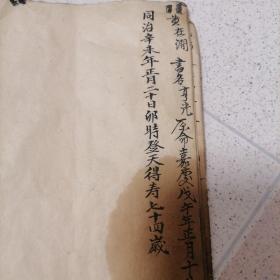 黄在潤 書名首亮 原命嘉慶戊午年正月十
同治辛未年正月二十日卯時登天得寿七十四歲